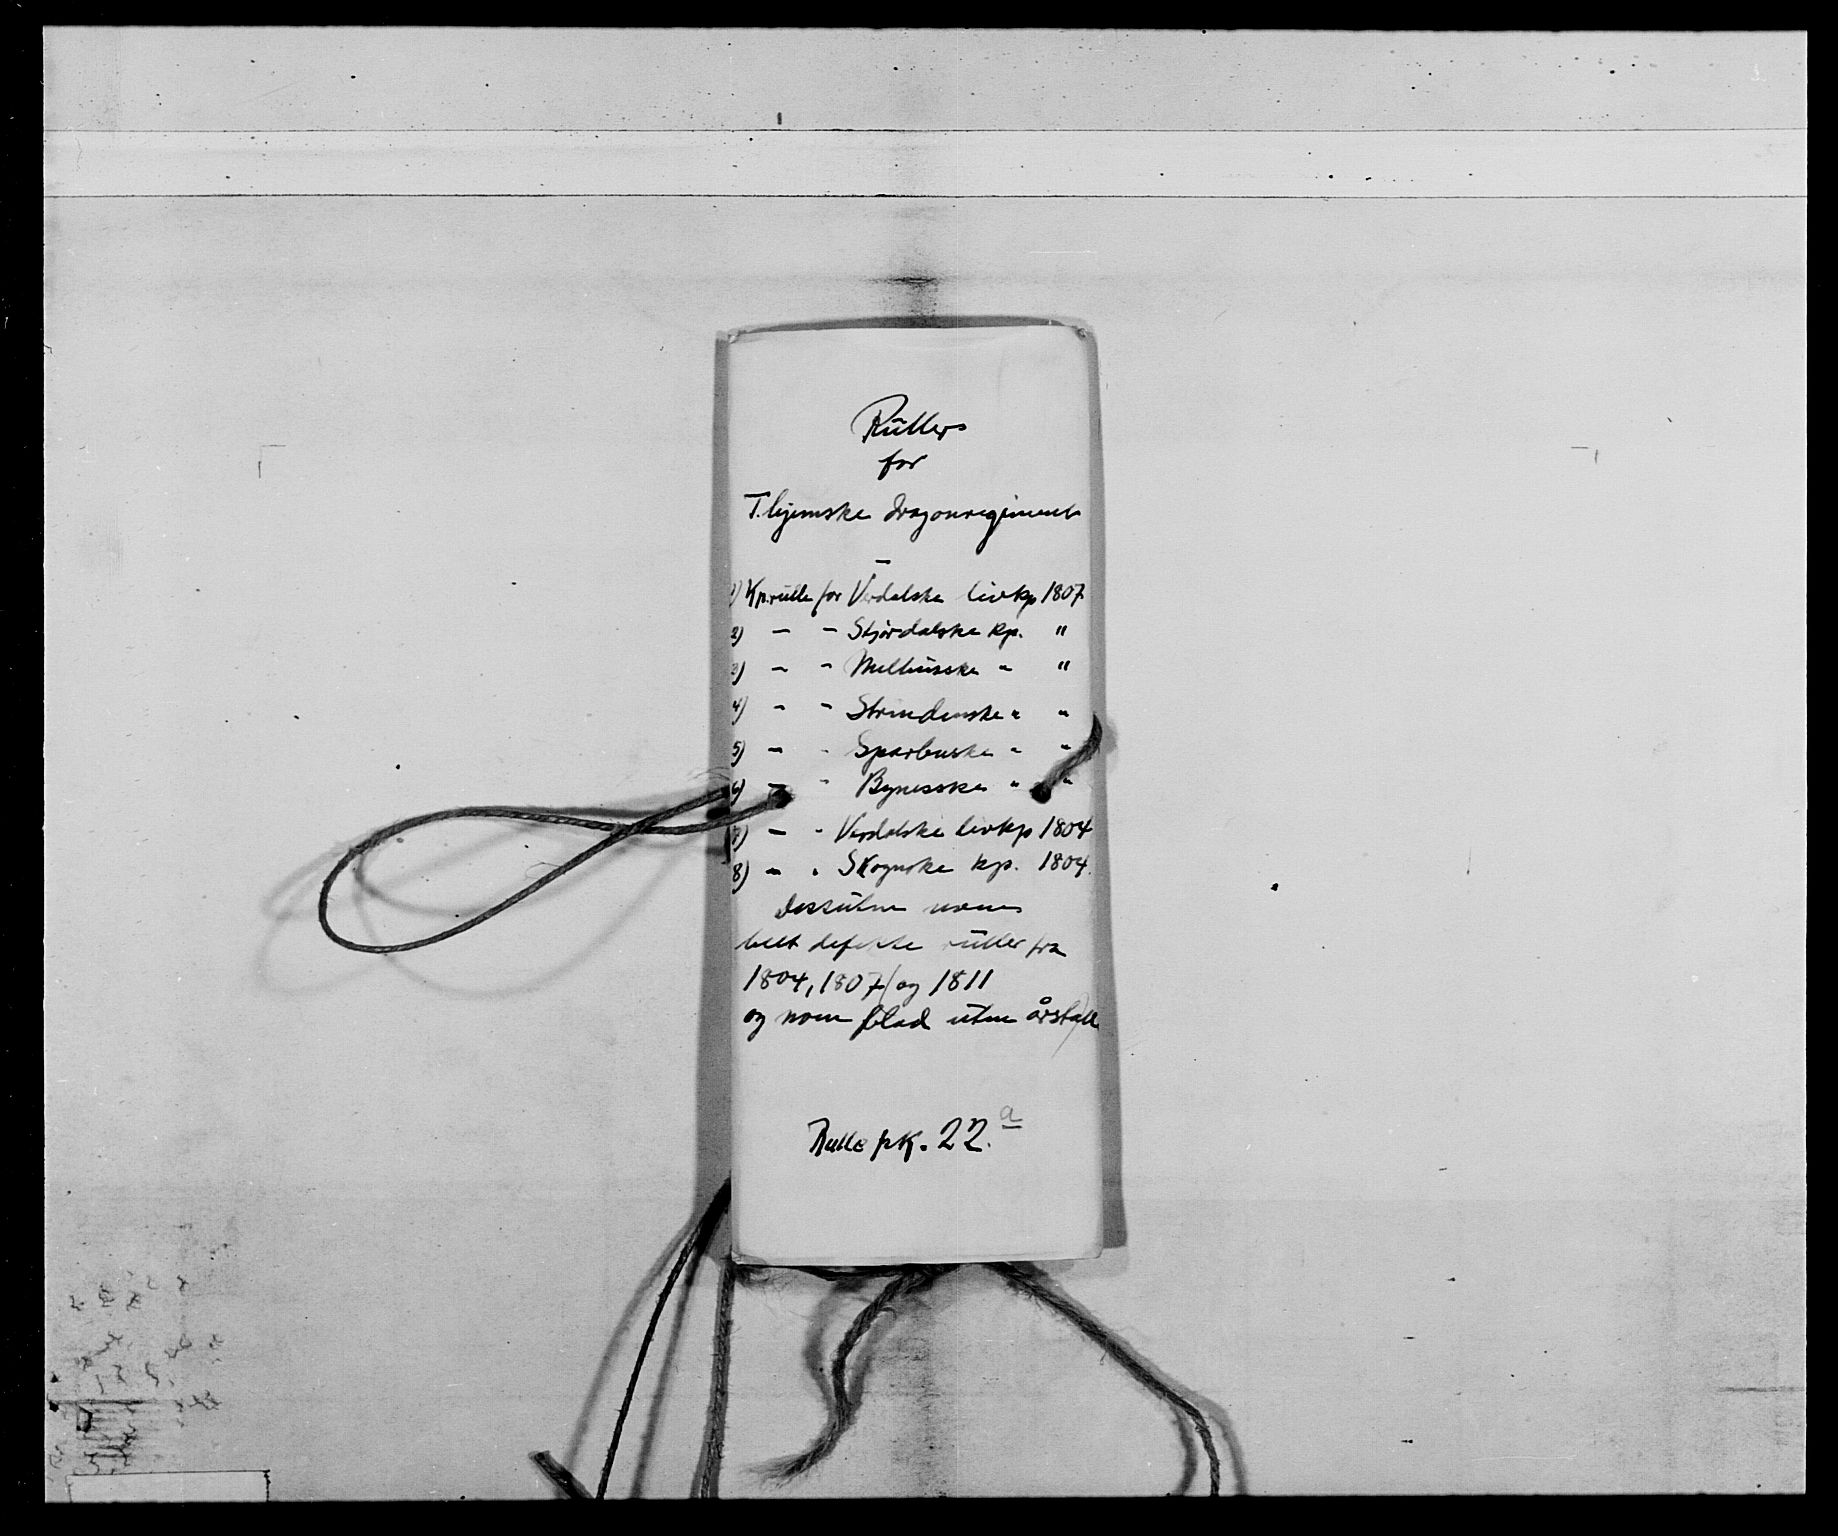 Rüller
for
T.hjemske dragonregiment
1) Kp.rulle for Verdalske livkp 1807
2) — — Stjørdalske kp. "
3) — — Melhusske " "
4) — — Strindenske " "
5) — — Sparbuske " "
6) — — Bynesske " "
7) — — Verdalske livkp 1804
8) — — Skognske kp. 1804.
dessuten noen
helt defekte ruller fra
1804, 1807 (og 1811
og noen blad uten årstall)
Rulle pk. 22.a